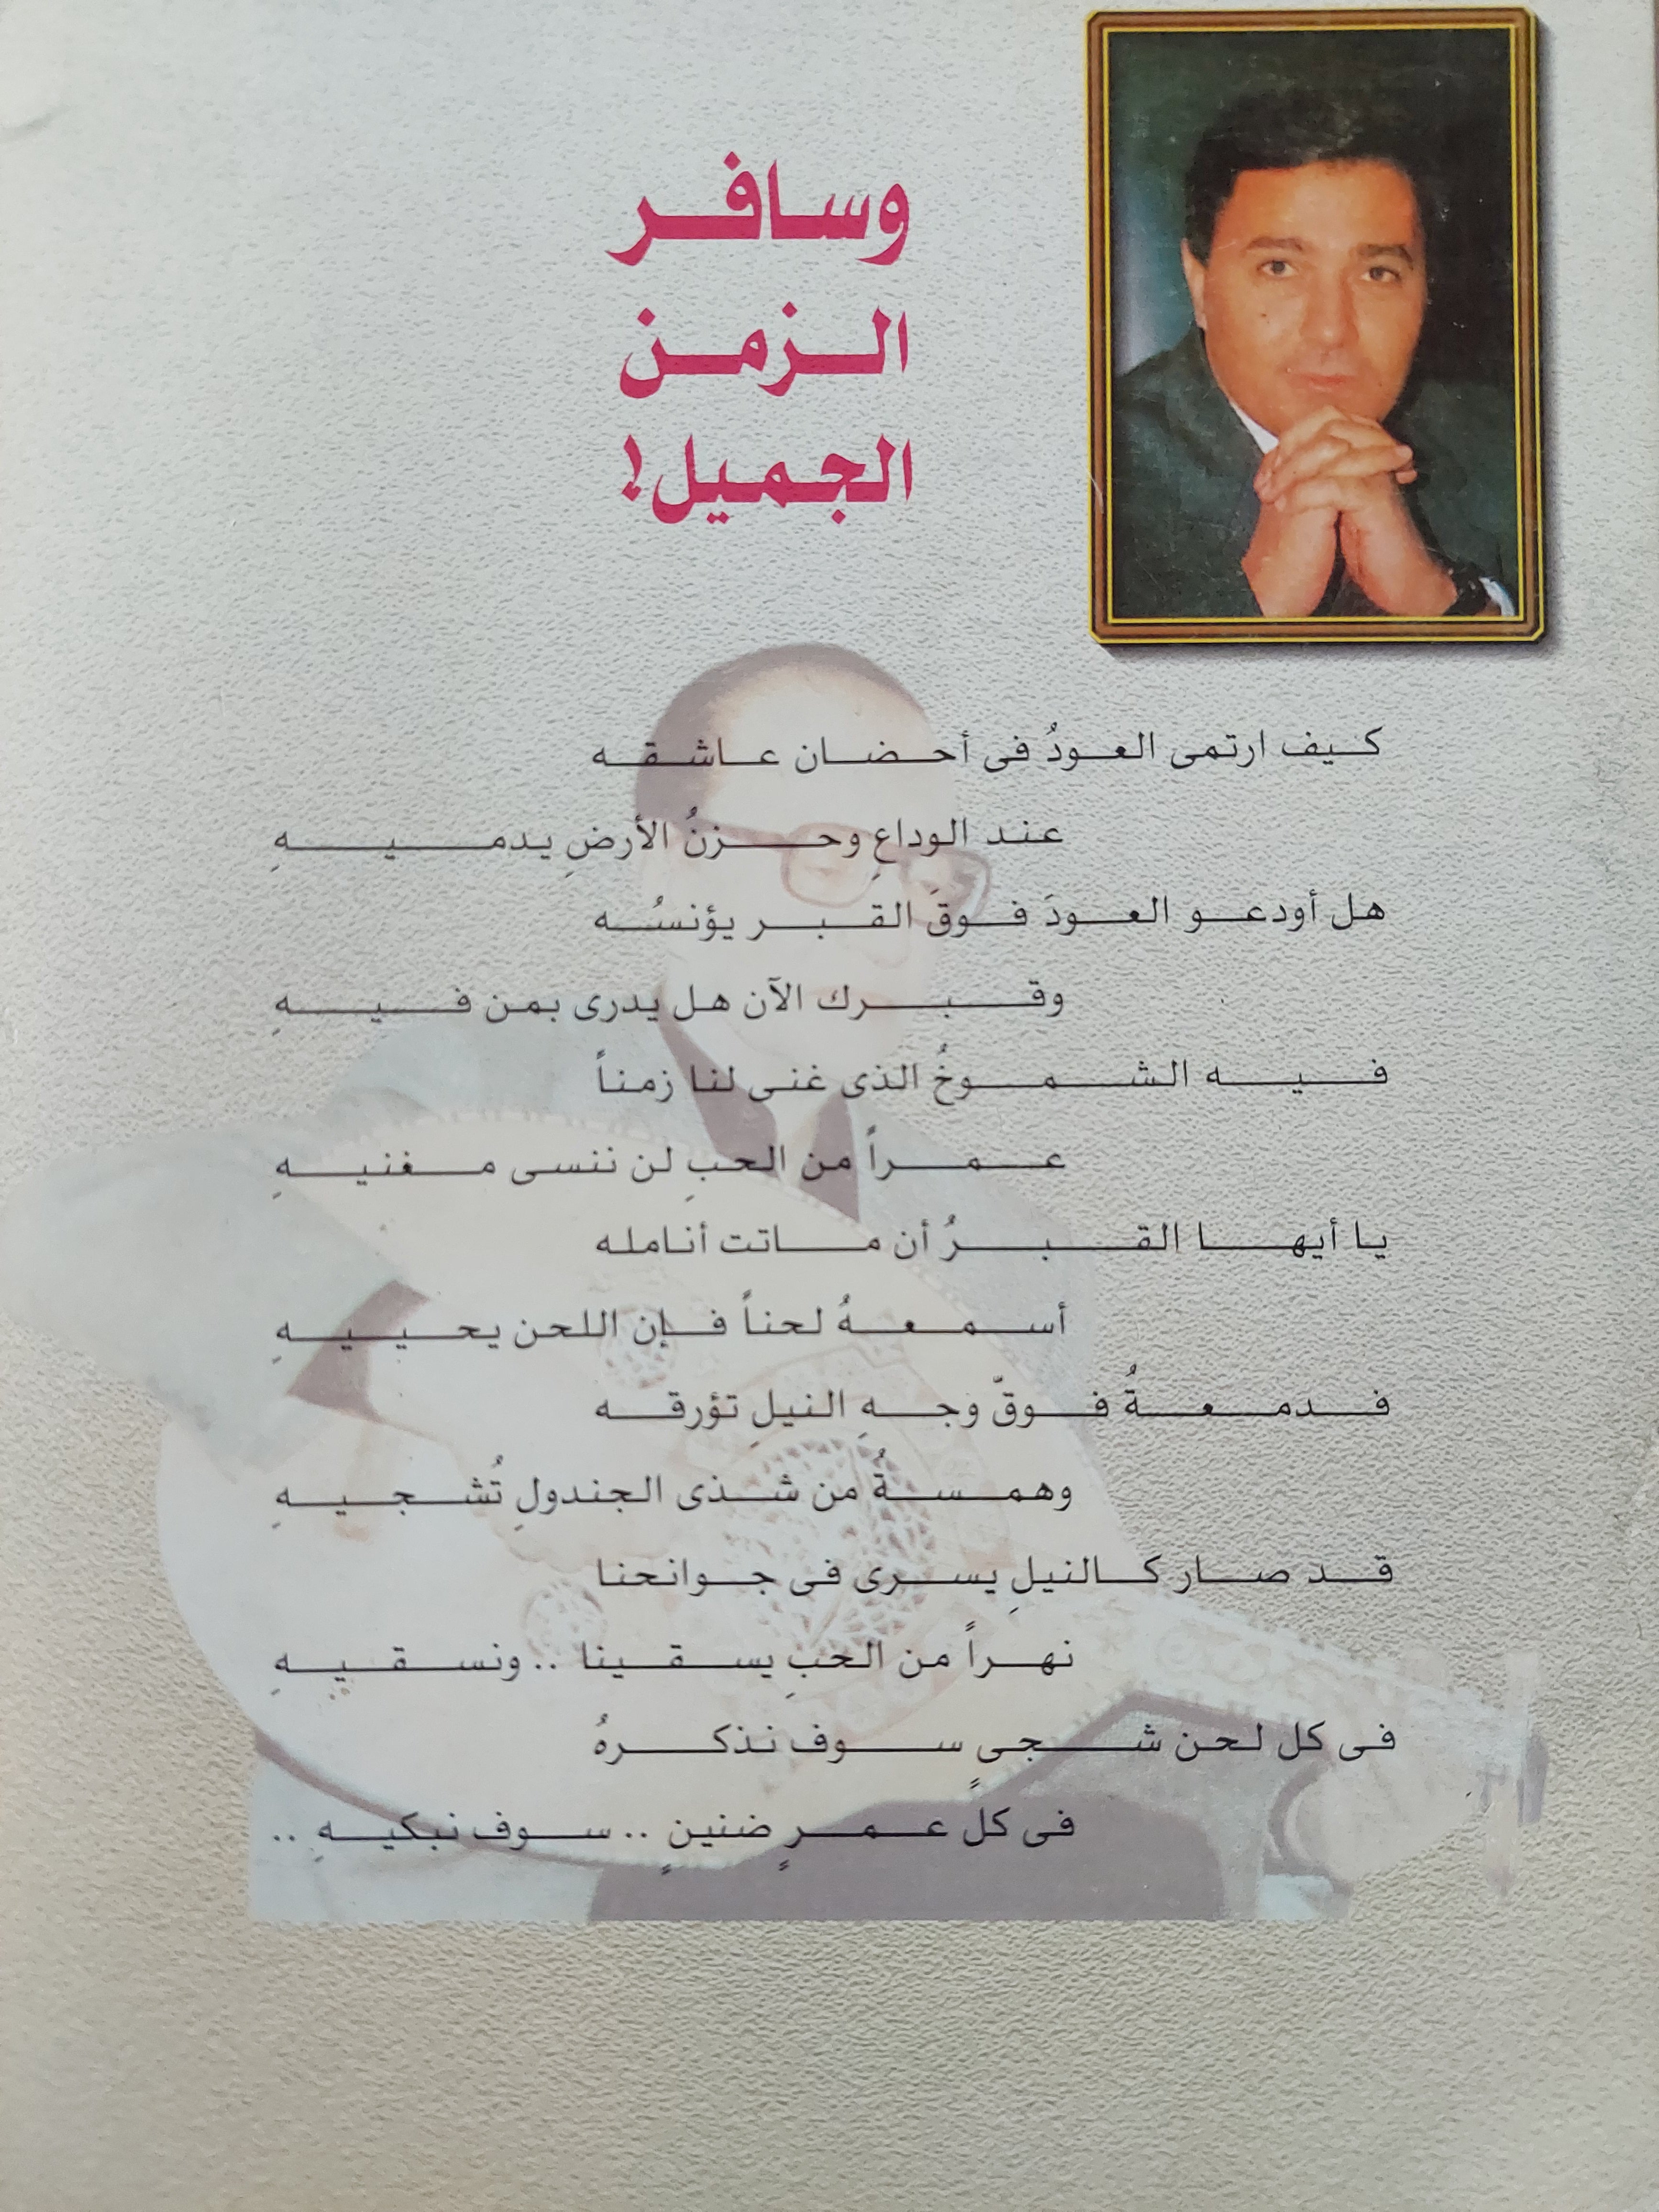 وسافر
الزمن
الجميل!
كيف ارتمى العودُ فى أحضان عاشقه
عند الوداعِ وحزنُ الأرضِ يدميهِ
هل أودعو العودَ فوقَ القبر يؤنسُه
وقبرك الآن هل يدرى بمن فيهِ
فيه الشموخُ الذى غنى لنا زمناً
عمراً من الحبِ لن ننسى مغنيهِ
يا أيها القبرُ أن ماتت أنامله
أسمعهُ لحناً فإن اللحن يحييهِ
فدمعةُ فوقّ وجهِ النيلِ تؤرقه
وهمسةُ من شذى الجندولِ تُشجيهِ
قد صار كالنيلِ يسرى فى جوانحنا
نهراً من الحبِ يسقينا .. ونسقيهِ
فى كل لحن شجىٍ سوف نذكرهُ
فى كل عمرٍ ضنينٍ .. سوف نبكيهِ ..